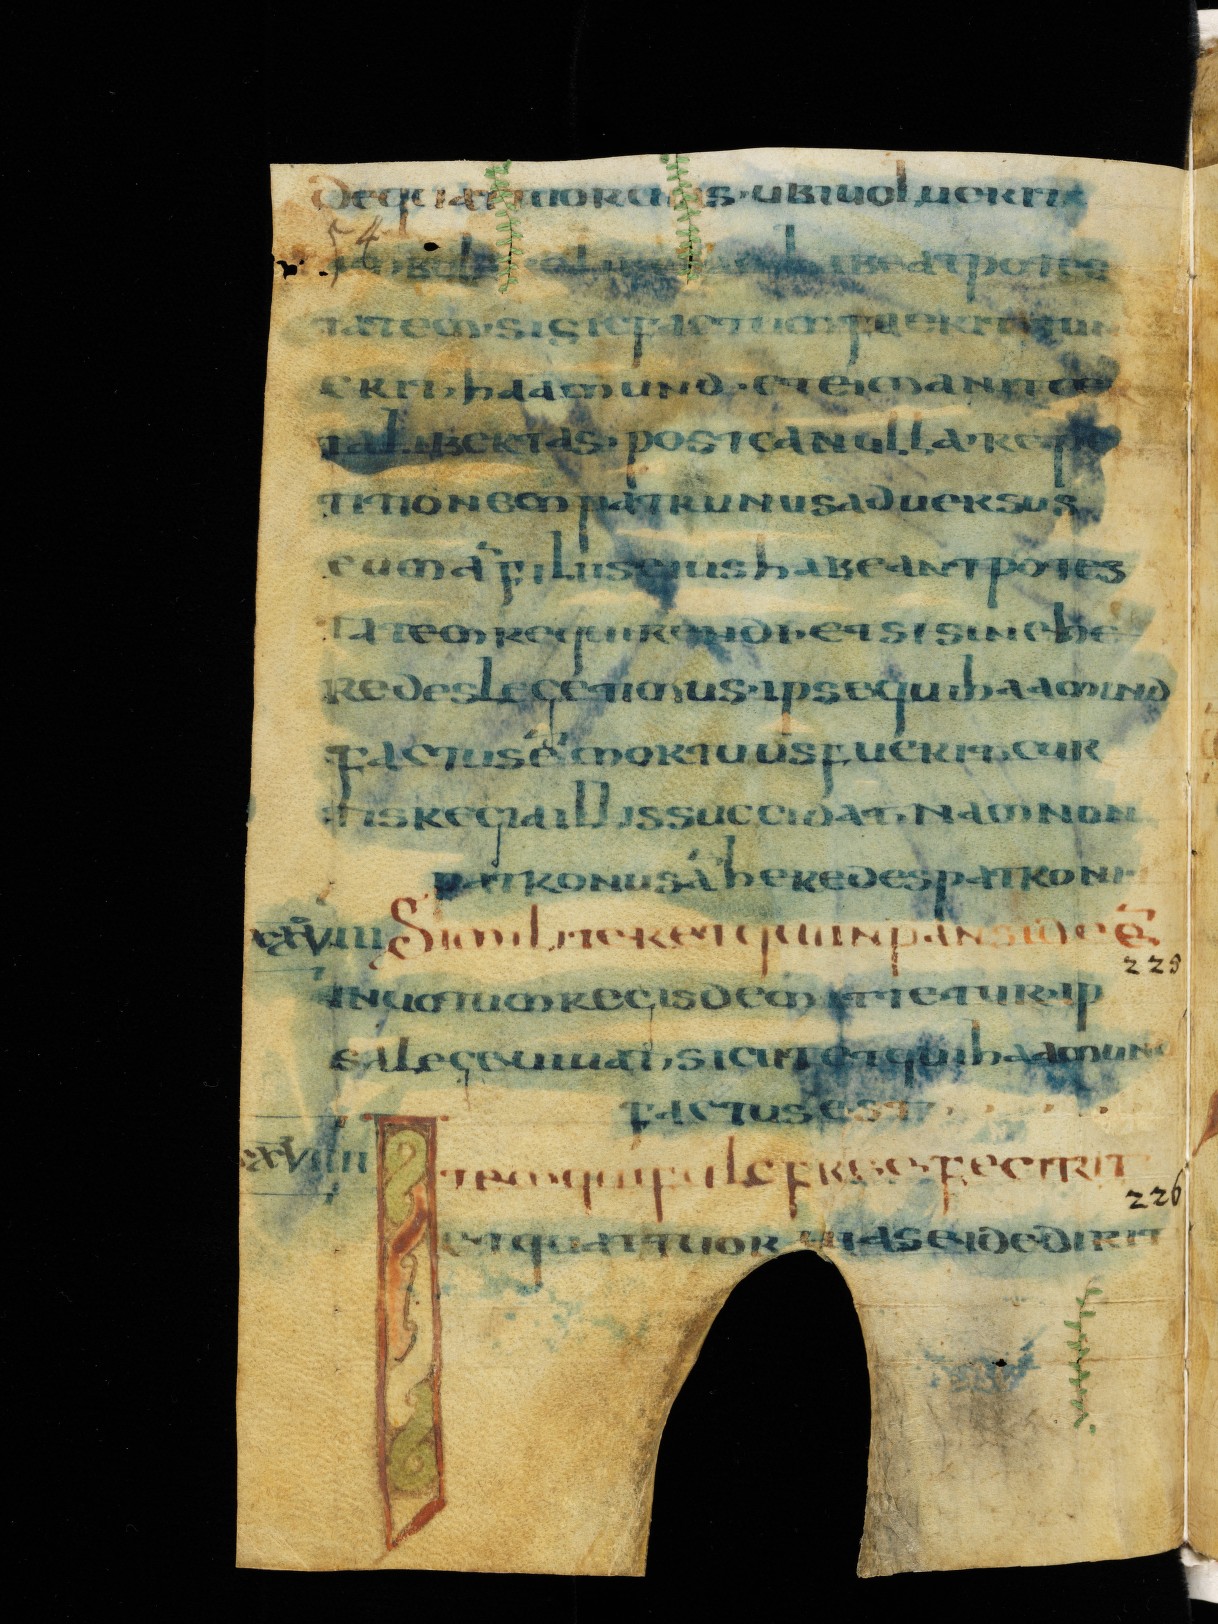 de quat uor uias ubi uoluerit
ambola libeat potes
tatem si sic factum fuerit tun
erit haamund et ei manit ce
ta libertas postea nulla repe
titionem patrunus aduersus
eum aut filius eius habeant potes
tatem requirendi et si sine he
redes legetimus ipse qui haamund
factus est mortuus fuerit cur
tis regia illi succidat nam non
patronus aut heredes patroni
ccxviii Similiter et qui inpans id est
225
in uotum regis demittetur ip
sa lege uiuat sicut et qui haamund
factus est
ccxviiii Item qui fulcfree fecirit
226
et quattuor uias ei dedirit
54